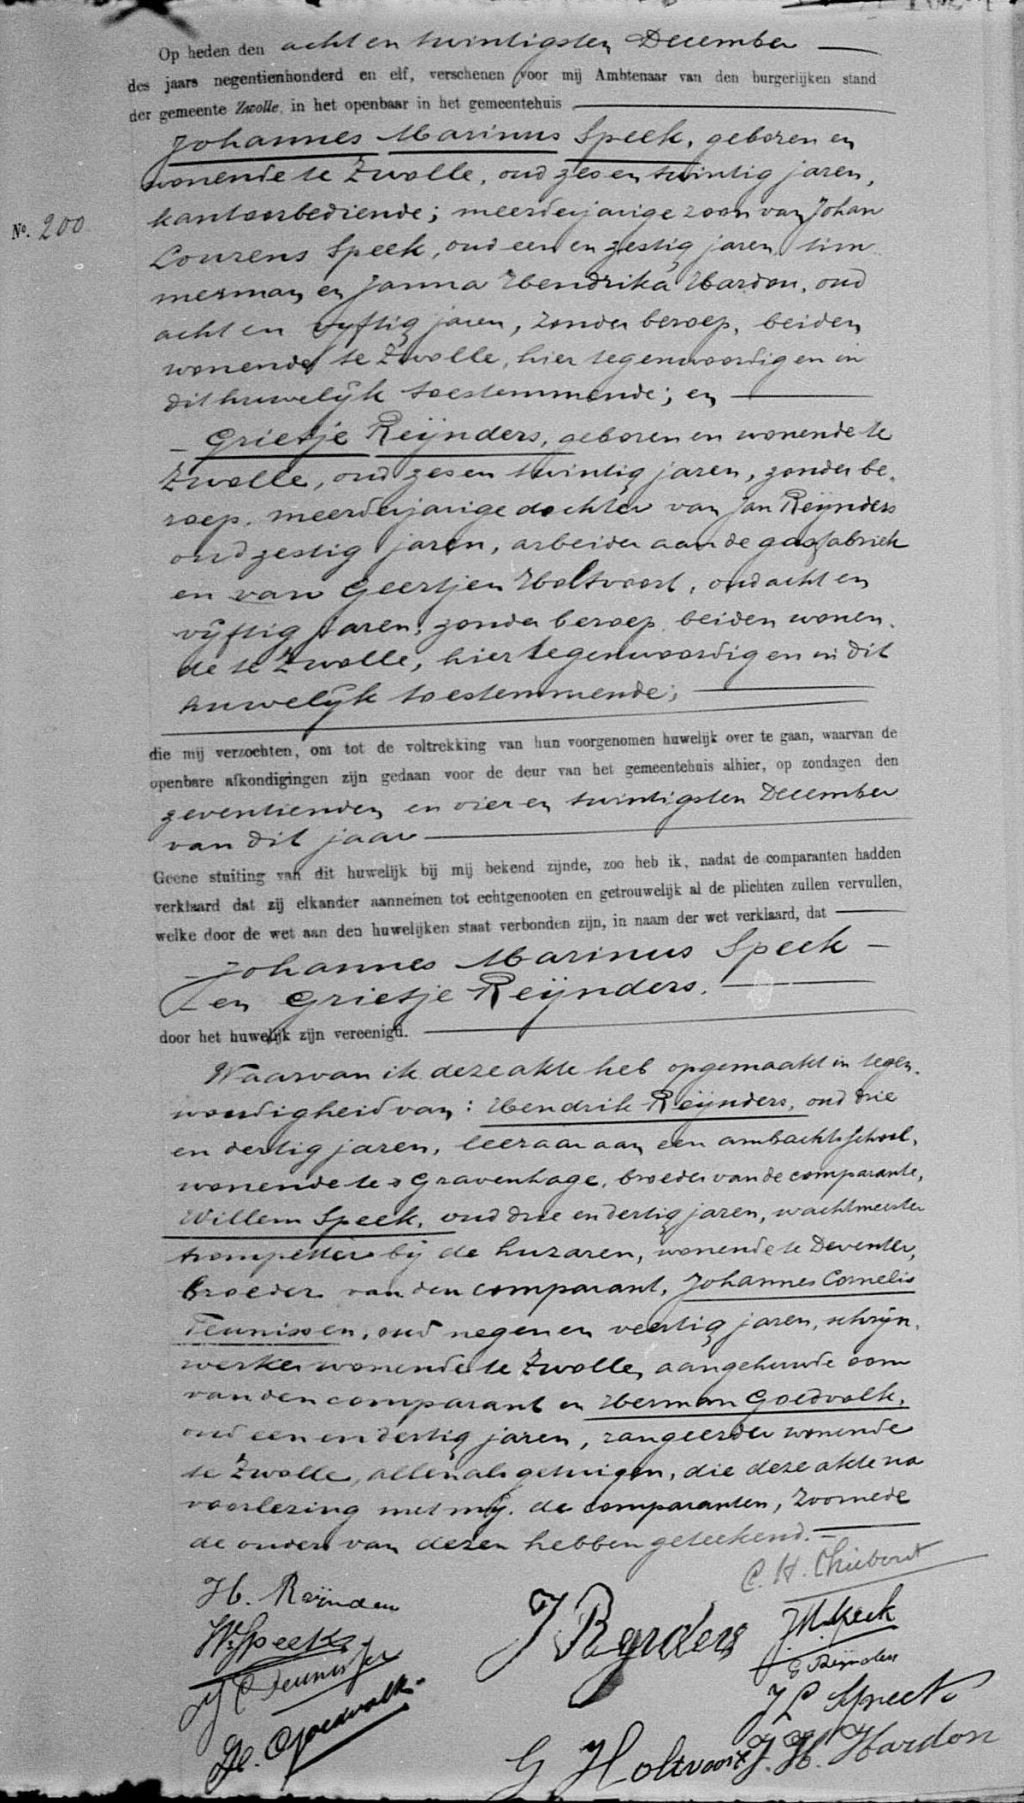 Op heden den acht en twintigsten December
des jaars negentienhonderd en elf, verschenen voor mij Ambtenaar van den burgerlijken stand
der gemeente Zwolle, in het openbaar in het gemeentehuis
Johannes Marinus Speek, geboren en
wonende te Zwolle, oud zes en twintig jaren,
kantoorbediende; meerderjarige zoon van Johan
No. 200
Lourens Speek, oud een en zestig jaren, tim
merman en Janna Hendrika Hardon, oud
acht en vyftig jaren, zonder beroep, beiden
wonende te Zwolle, hier tegenwoordig en in
dit huwelijk toestemmende; en
Grietje Reijnders, geboren en wonende te
Zwolle, oud zes en twintig jaren, zonder be-
roep, meerderjarige dochter van Jan Reijnders
oud zestig jaren, arbeider aan de gasfabriek
en van Geertjen Holtvoort, oud acht en
vijftig jaren, zonder beroep, beiden wonen-
de te Zwolle, hier tegenwoordig en in dit
huwelijk toestemmende;
die mij verzochten, om tot de voltrekking van hun voorgenomen huwelijk over te gaan, waarvan de
openbare afkondigingen zijn gedaan voor de deur van het gemeentehuis alhier, op zondagen den
zeventienden en vier en twintigsten December
van dit jaar
Geene stuiting van dit huwelijk bij mij bekend zijnde, zoo heb ik, nadat de comparanten hadden
verklaard dat zij elkander aannemen tot echtgenooten en getrouwelijk al de plichten zullen vervullen,
welke door de wet aan den huwelijken staat verbonden zijn, in naam der wet verklaard, dat
Johannes Marinus Speek
en Grietje Reijnders.
door het huwelijk zijn vereenigd.
Waarvan ik deze akte heb opgemaakt in tegen-
woordigheid van: Hendrik Reijnders, oud drie
en dertig jaren, leeraar aan een ambachtsschool,
wonende te s Gravenhage, broeder van de comparante,
Willem Speek, oud drie en dertig jaren, wachtmeester
trompetter bij de huzaren, wonende te Deventer,
broeder van den comparant, Johannes Cornelis
Teunissen, oud negen en veertig jaren, schrijn-
werker wonende te Zwolle, aangehuwde oom
van den comparant en Herman Goedvolk,
oud een en dertig jaren, rangeerder wonende
te Zwolle, allen als getuigen, die deze akte na
voorlezing met mij, de comparanten, zoomede
de ouders van dezen hebben geteekend.
C. H. Thiebout
H. Reijnders
J Rynders
JM Speek
W. Speek
G Reijnders
J C Teunissen
J L Speek
He. Goedvolk
G Holtvoort
J. H. Hardon